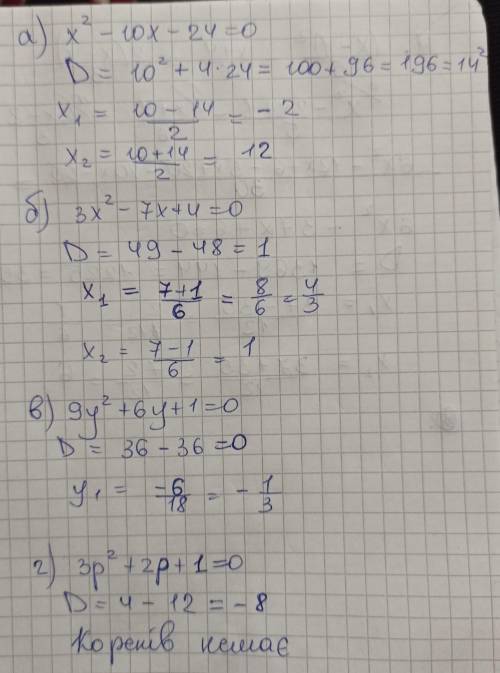 а) x² - 10x - 24 = 0
D = 10² + 4·24 = 100 + 96 = 196 = 14²
x₁ = (10 - 14)/2 = - 2
x₂ = (10+14)/2 = 12
б) 3x² - 7x + 4 = 0
D = 49 - 48 = 1
x₁ = (7+1)/6 = 8/6 = 4/3
x₂ = (7-1)/6 = 1
в) 9y² + 6y + 1 = 0
D = 36 - 36 = 0
y₁ = -6/18 = - 1/3
г) 3p² + 2p + 1 = 0
D = 4 - 12 = - 8
Коренів немає